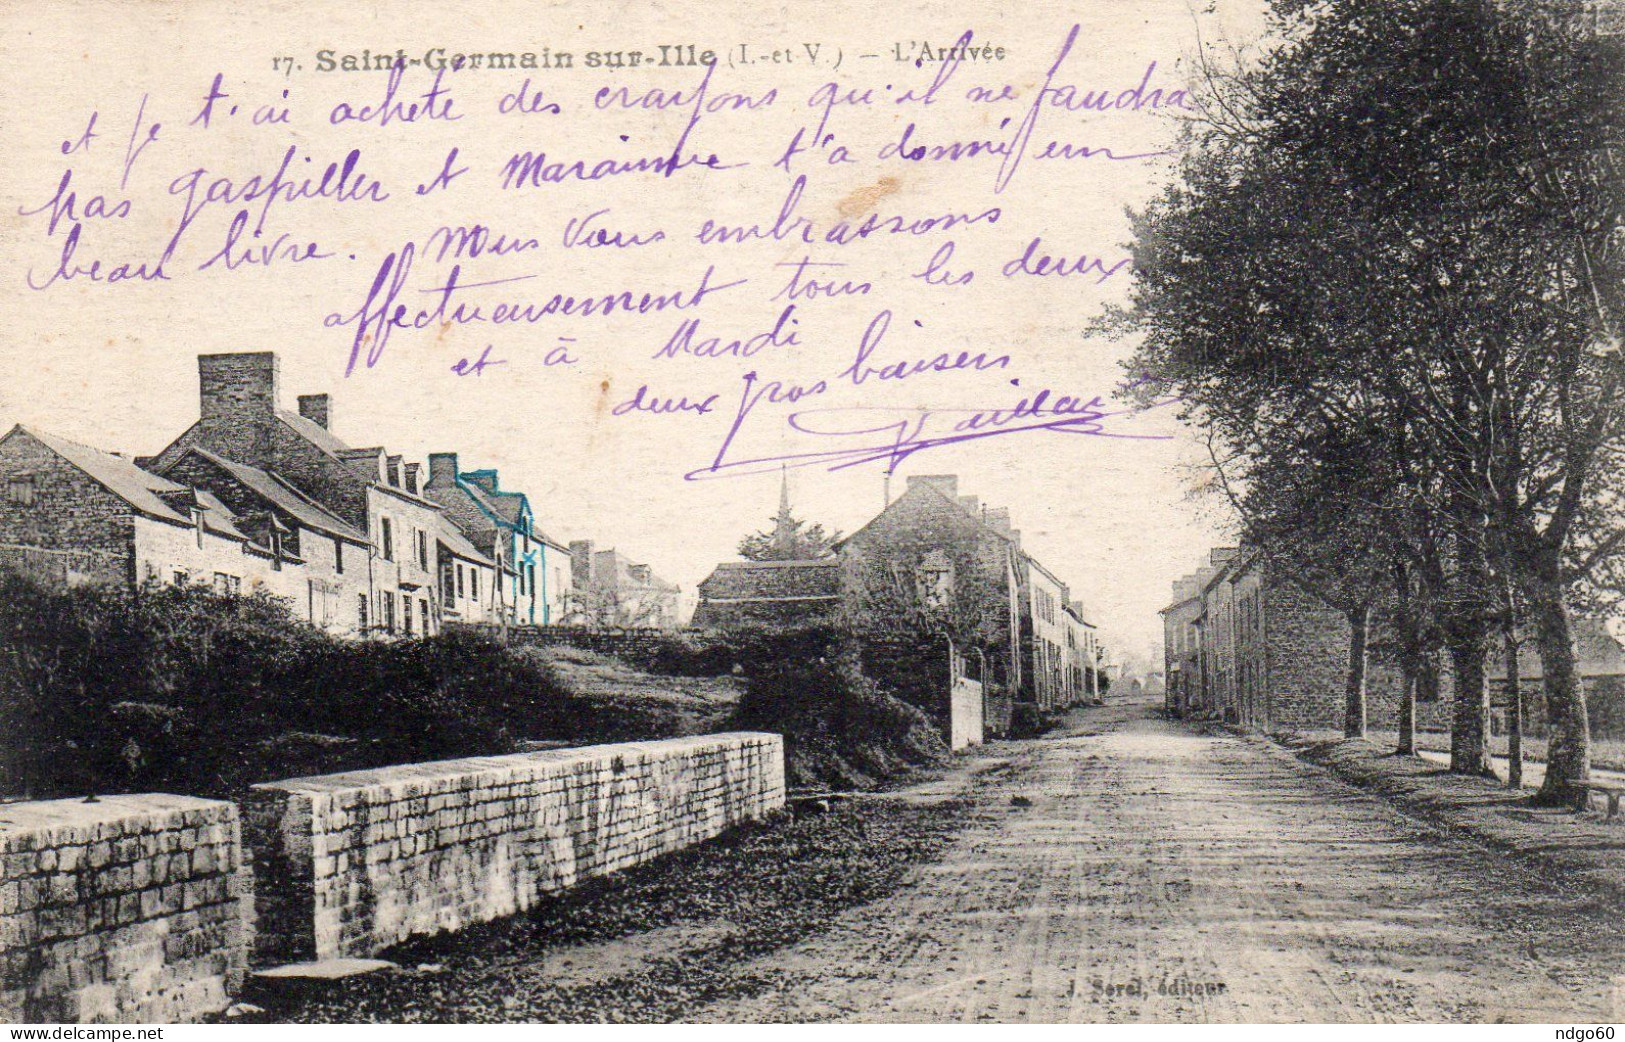 17. Saint-Germain sur-Ille (I.-et V.) — L'Arrivée
et je t'ai acheté des crayons qu'il ne faudra
pas gaspiller et Marainne t'a donné un
beau livre. Nous vous embrassons
affectueusement tous les deux
et à Mardi
deux gros baisers
J. Sorel, éditeur
ndgo60